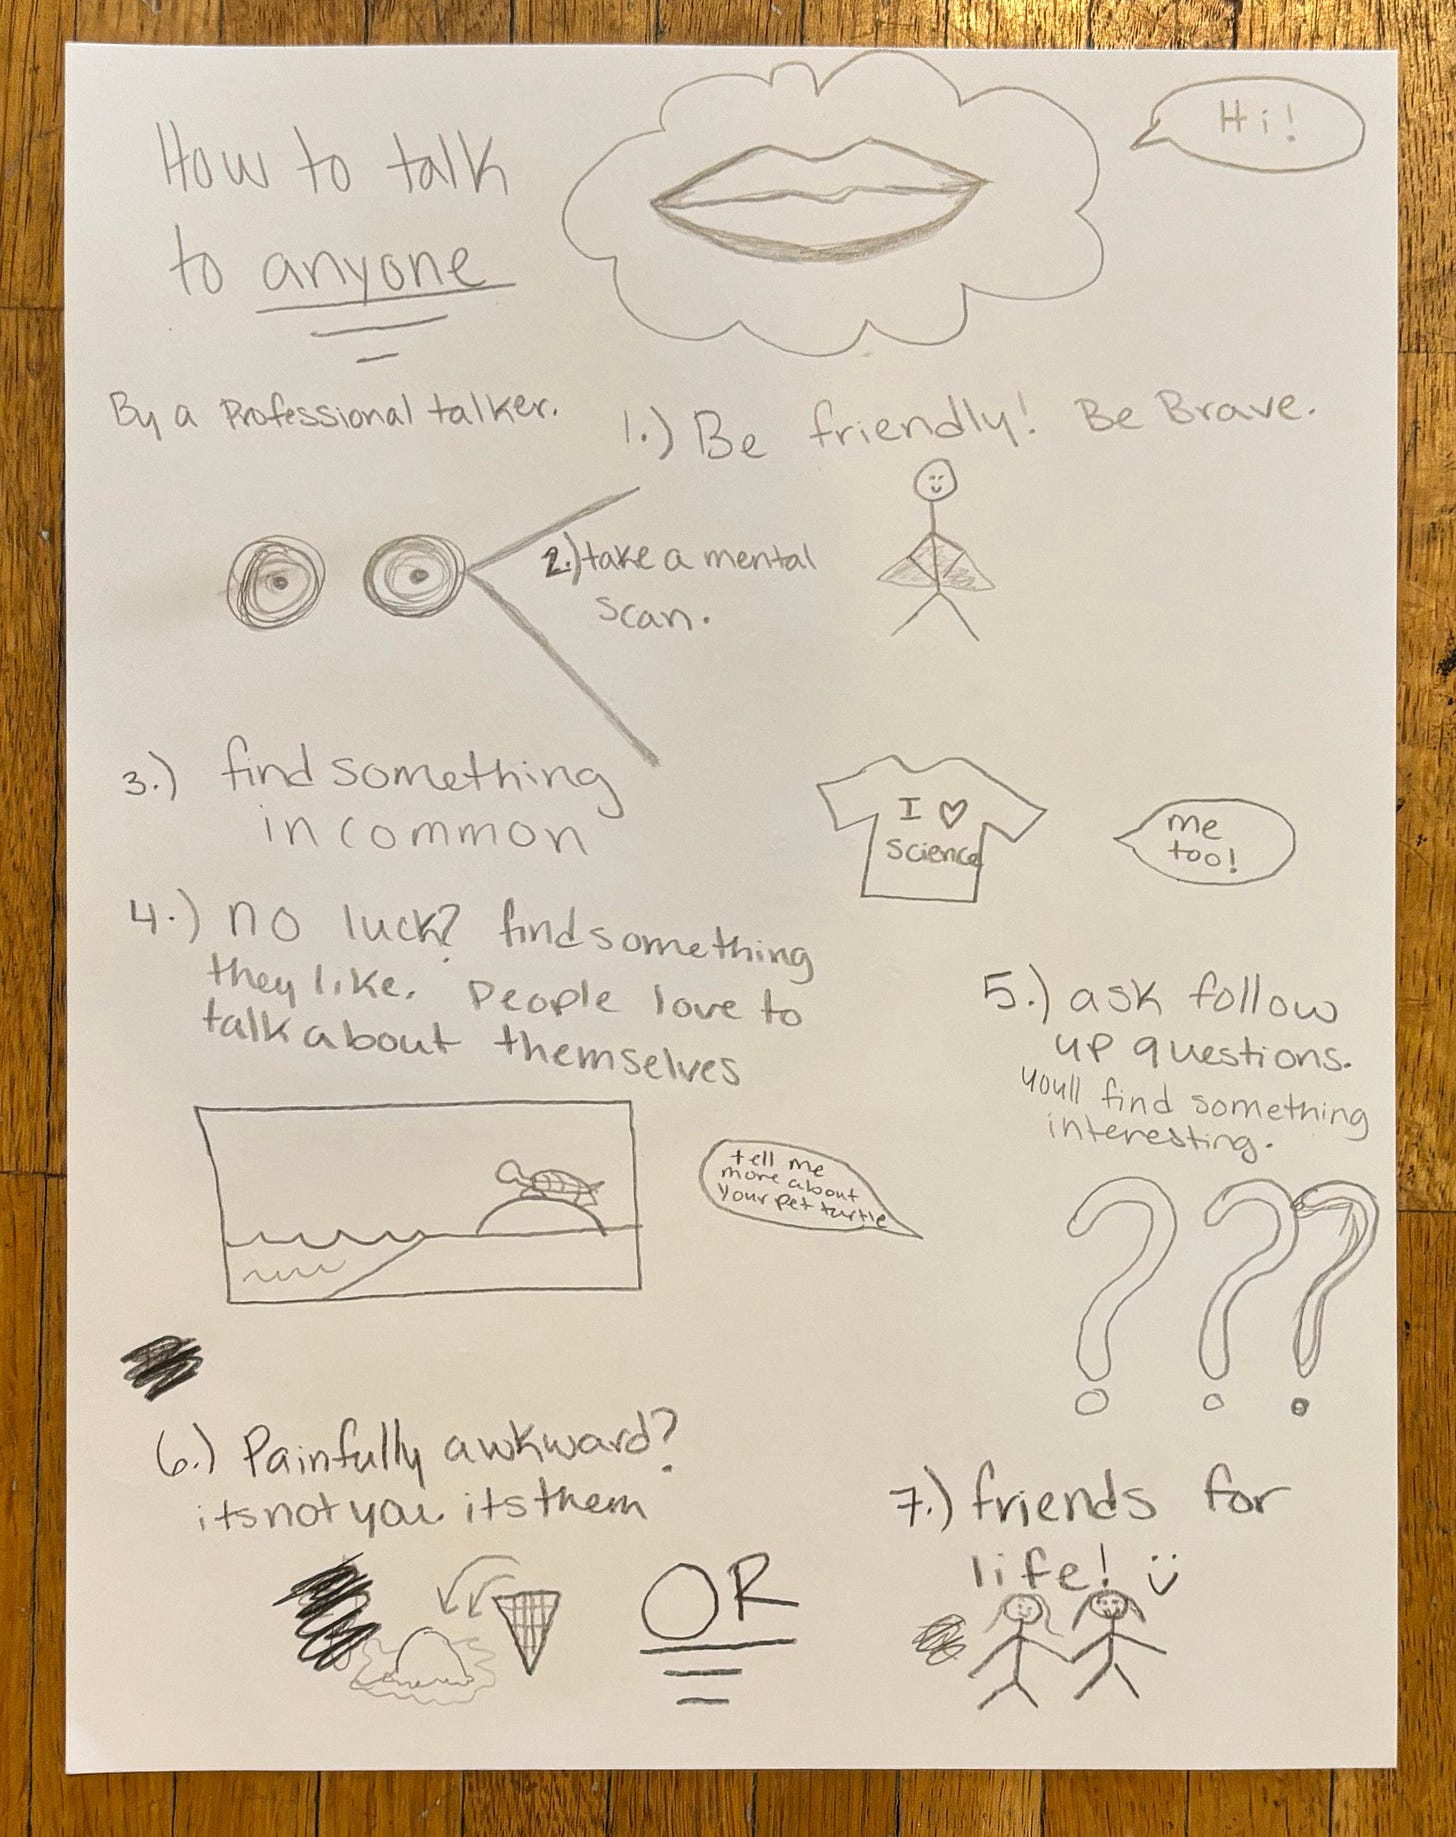 How to talk
to anyone
Hi!
By a Professional talker.
1.) Be friendly! Be Brave.
2.) take a mental
scan.
3.) find something
in common
I ♡
Science
me
too!
4.) no luck? find something
they like. People love to
talk about themselves
5.) ask follow
up questions.
youll find something
interesting.
tell me
more about
your pet turtle
???
6.) Painfully awkward?
its not you its them
OR
7.) friends for
life! :)